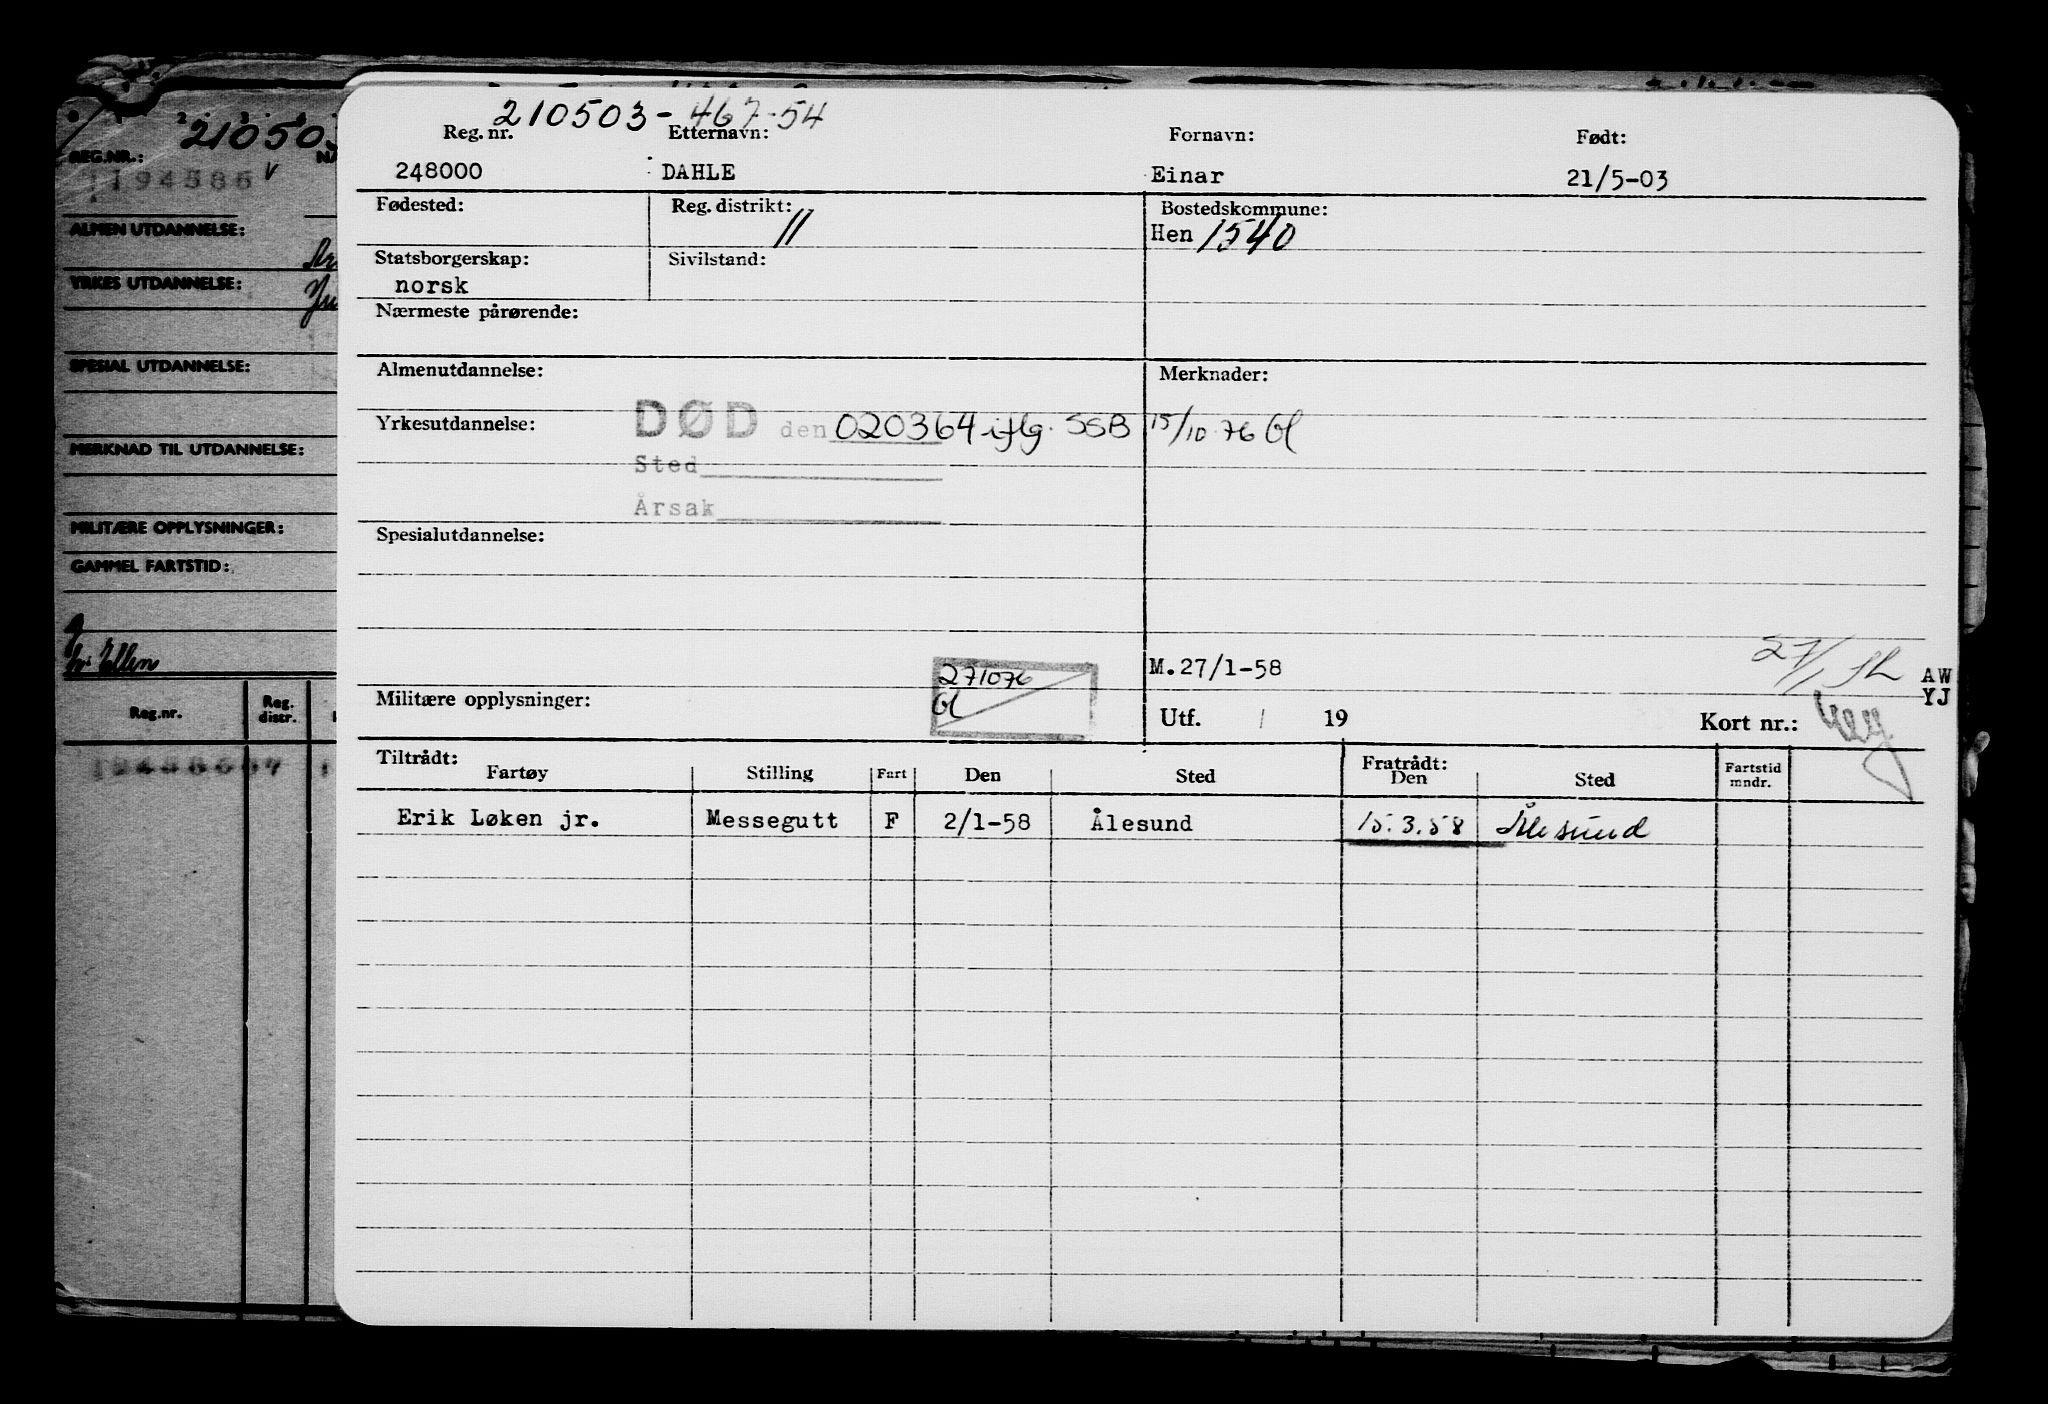 210503-467-54
Reg. nr. Etternavn: Fornavn: Født:
248000 DAHLE Einar 21/5-03
Fødested: Reg. distrikt: Bostedskommune:
11 Hen 1540
Statsborgerskap: Sivilstand:
norsk
Nærmeste pårørende:
Almenutdannelse: Merknader:
Yrkesutdannelse: DØD den 020364 iflg. SSB 15/10-76 Gl
Sted
Årsak
Spesialutdannelse:
M.27/1-58 27/1 AW
YJ
Militære opplysninger: 271076
Gl
Utf. / 19 Kort nr.:
Tiltrådt: Fratrådt:
Fartøy Stilling Fart Den Sted Den Sted Fartstid mndr.
Erik Løken jr. Messegutt F 2/1-58 Ålesund 15.3.58 Ålesund
210503
REG.NR.:
1194586 v
ALMEN UTDANNELSE:
YRKES UTDANNELSE:
SPESIAL UTDANNELSE:
MERKNAD TIL UTDANNELSE:
MILITÆRE OPPLYSNINGER:
GAMMEL FARTSTID:
Ellen
Reg.nr. Reg. distr.